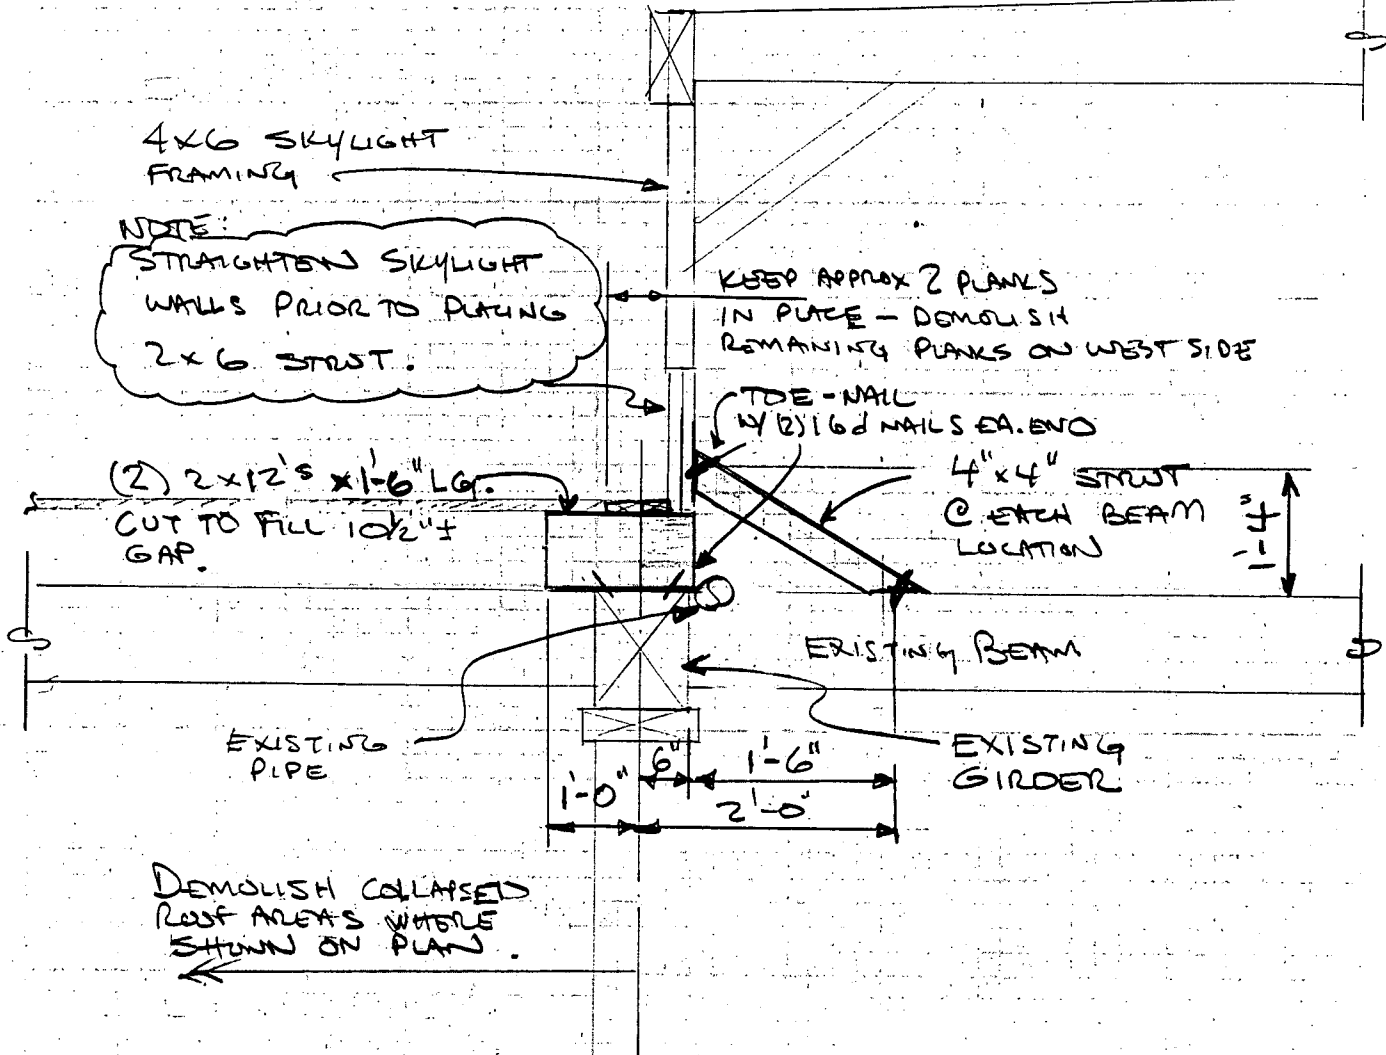 4x6 SKYLIGHT
FRAMING
NOTE:
STRAIGHTEN SKYLIGHT
WALLS PRIOR TO PLACING
2x6 STRUT.
KEEP APPROX 2 PLANKS
IN PLACE - DEMOLISH
REMAINING PLANKS ON WEST SIDE
TOE-NAIL
W/(2)16d NAILS EA. END
(2) 2x12's x 1'-6" LG.
CUT TO FILL 10½"±
GAP.
4"x4" STRUT
@ EACH BEAM
LOCATION
EXISTING BEAM
EXISTING
PIPE
EXISTING
GIRDER
6"
1'-6"
1'-0"
2'-0"
DEMOLISH COLLAPSED
ROOF AREAS WHERE
SHOWN ON PLAN.